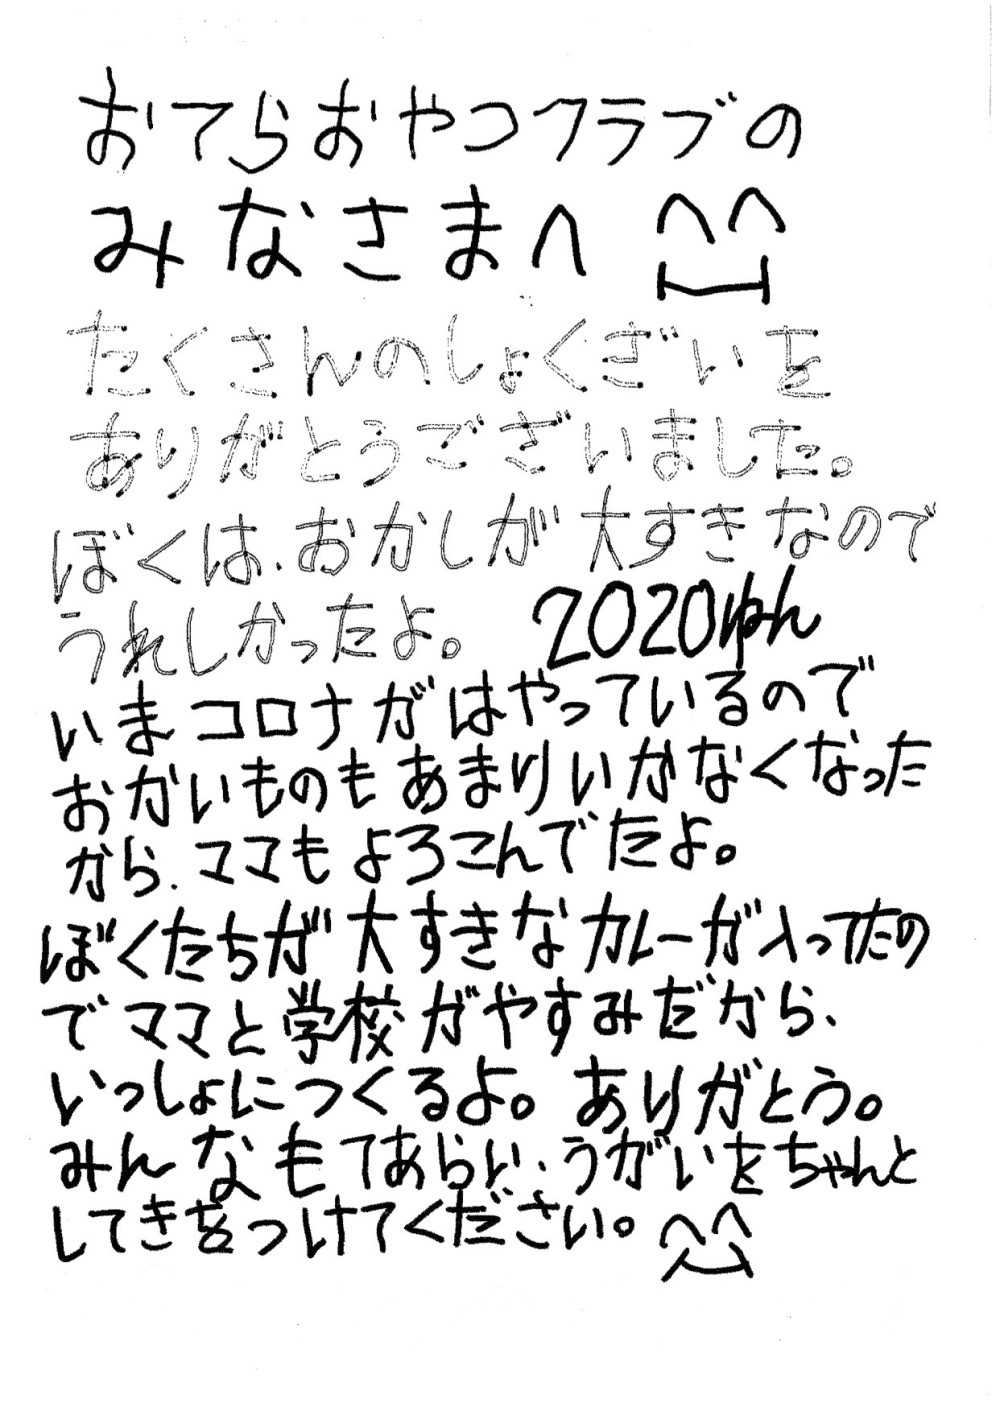 おてらおやつクラブの
みなさまへ
たくさんのしょくざいを
ありがとうございました。
ぼくは、おかしが大すきなので
うれしかったよ。 2020ねん
いまコロナがはやっているので
おかいものもあまりいかなくなった
から、ママもよろこんでたよ。
ぼくたちが大すきなカレーが入ってたの
でママと学校がやすみだから、
いっしょにつくるよ。ありがとう。
みんなもてあらい、うがいをちゃんと
してきをつけてください。